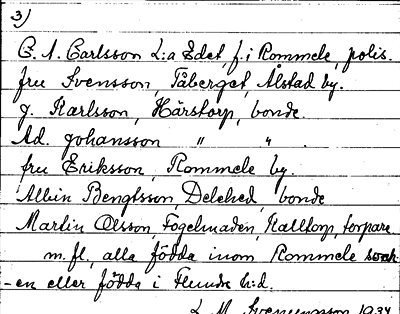 3)
C. A. Carlsson L:a Edet, f. i Rommele, polis.
fru Svensson, Tåberget, Ålstad by.
J. Karlsson, Hårstorp, bonde.
Ad. Johansson " " .
fru Eriksson, Rommele by.
Albin Bengtsson, Delehed, bonde
Martin Olsson, Fogelmaden, Kalltorp, torpare
m. fl., alla födda inom Rommele sock
-en eller födda i Flundre h:d.
L. M. Svenungsson 1934